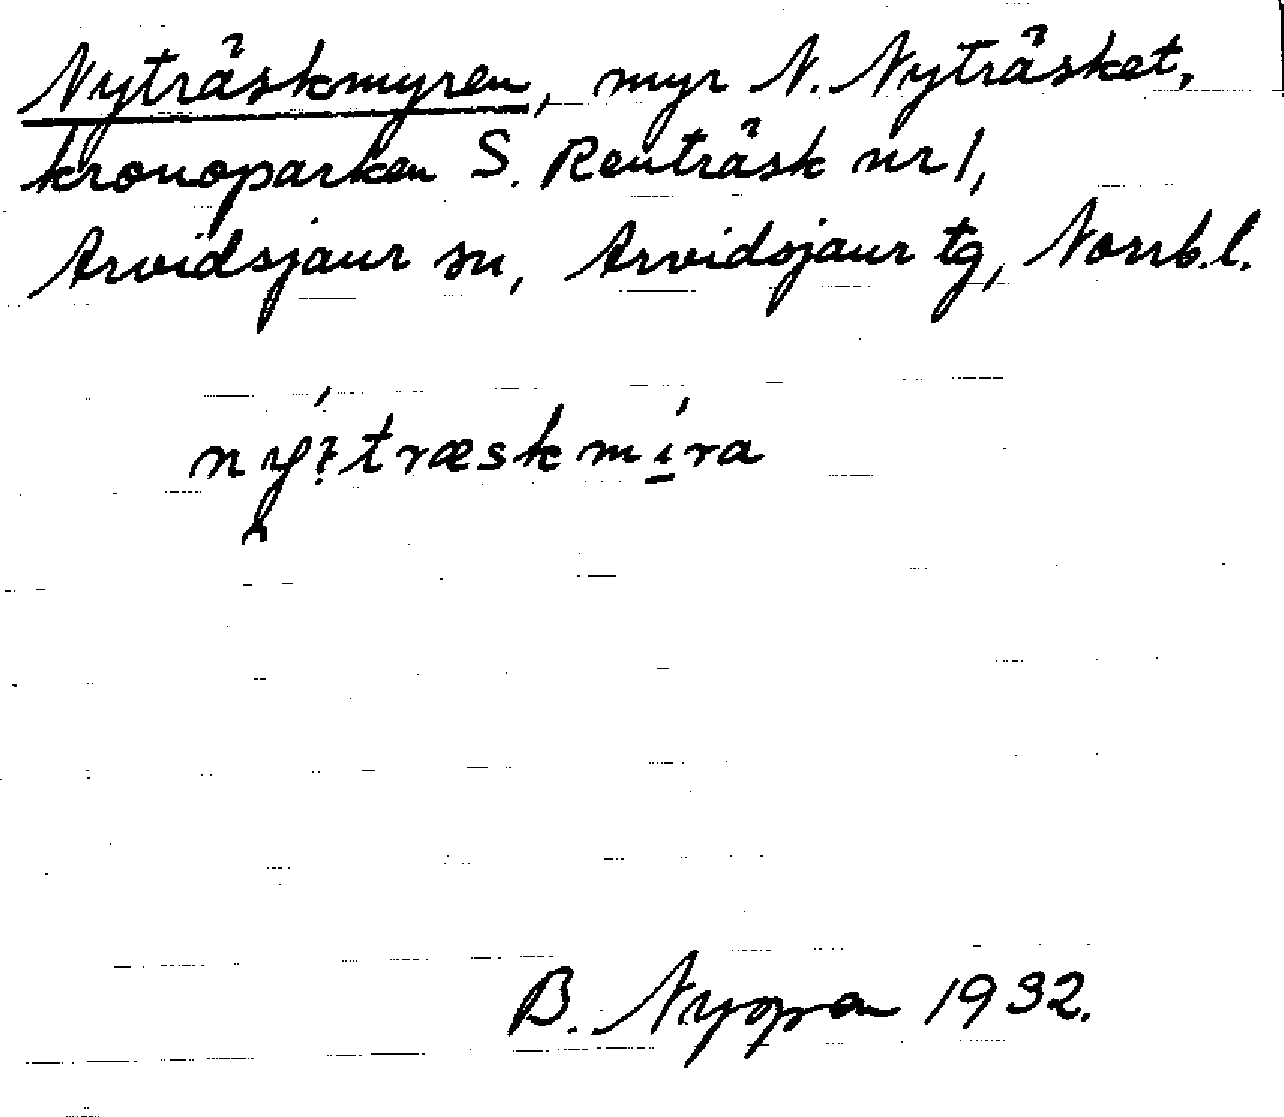 Nyträskmyren, myr N. Nyträsket,
kronoparken S. Renträsk nr 1,
Arvidsjaur sn, Arvidsjaur tg, Norrb.l.
træskmi̱ra
B. 1932.